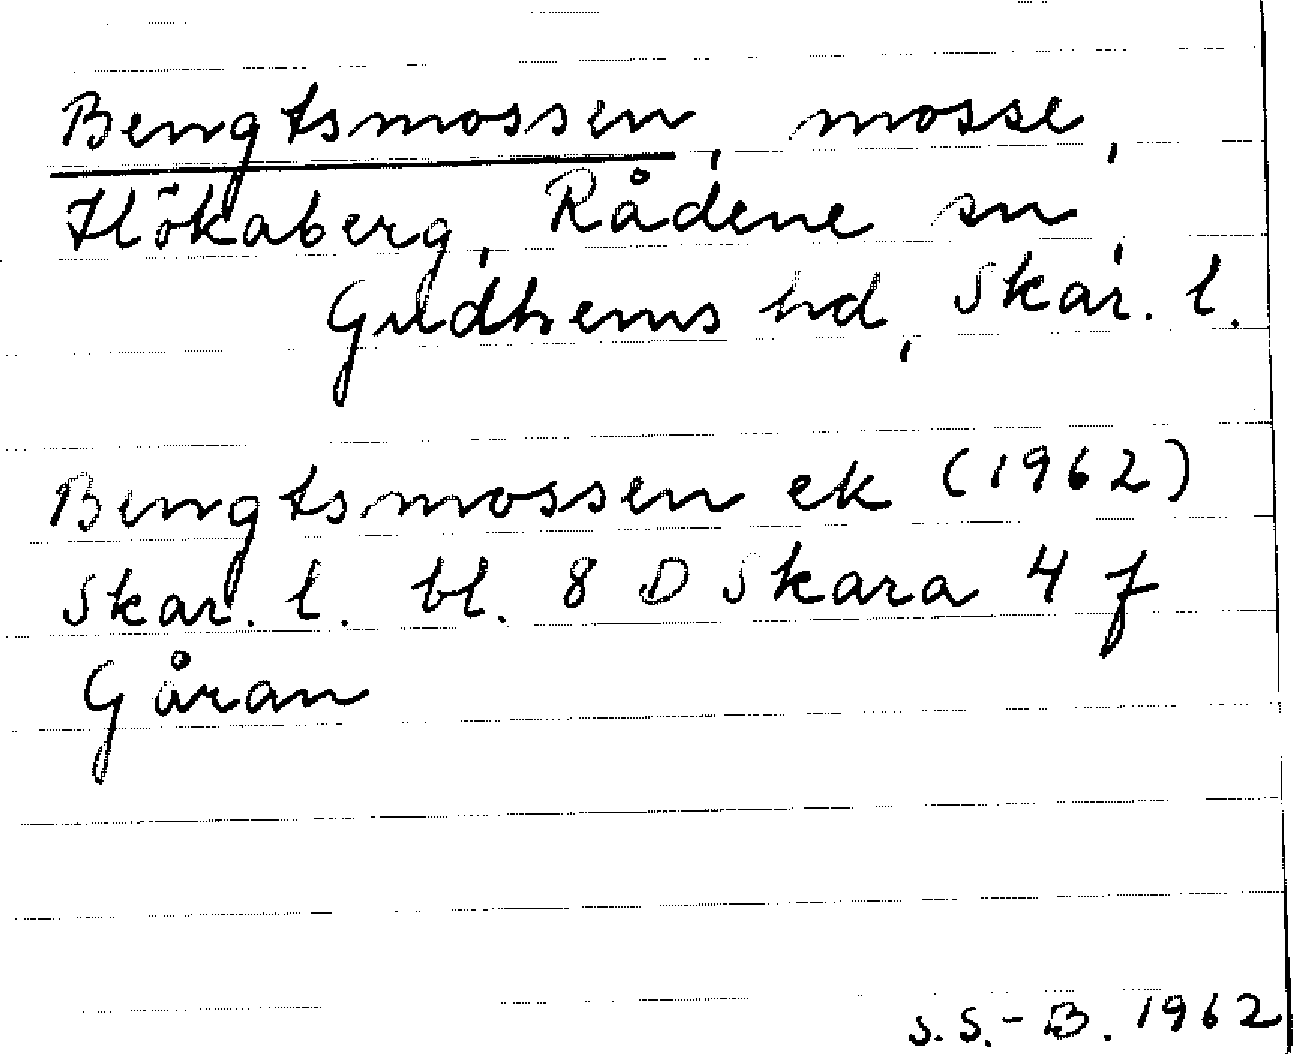 Bengtsmossen, mosse,
Hökaberg, Rådene sn,
Gudhems hd, Skar. l.
Bengtsmossen ek (1962)
Skar. l. bl. 8 D Skara 4 f
Gåran
S.S.-B. 1962